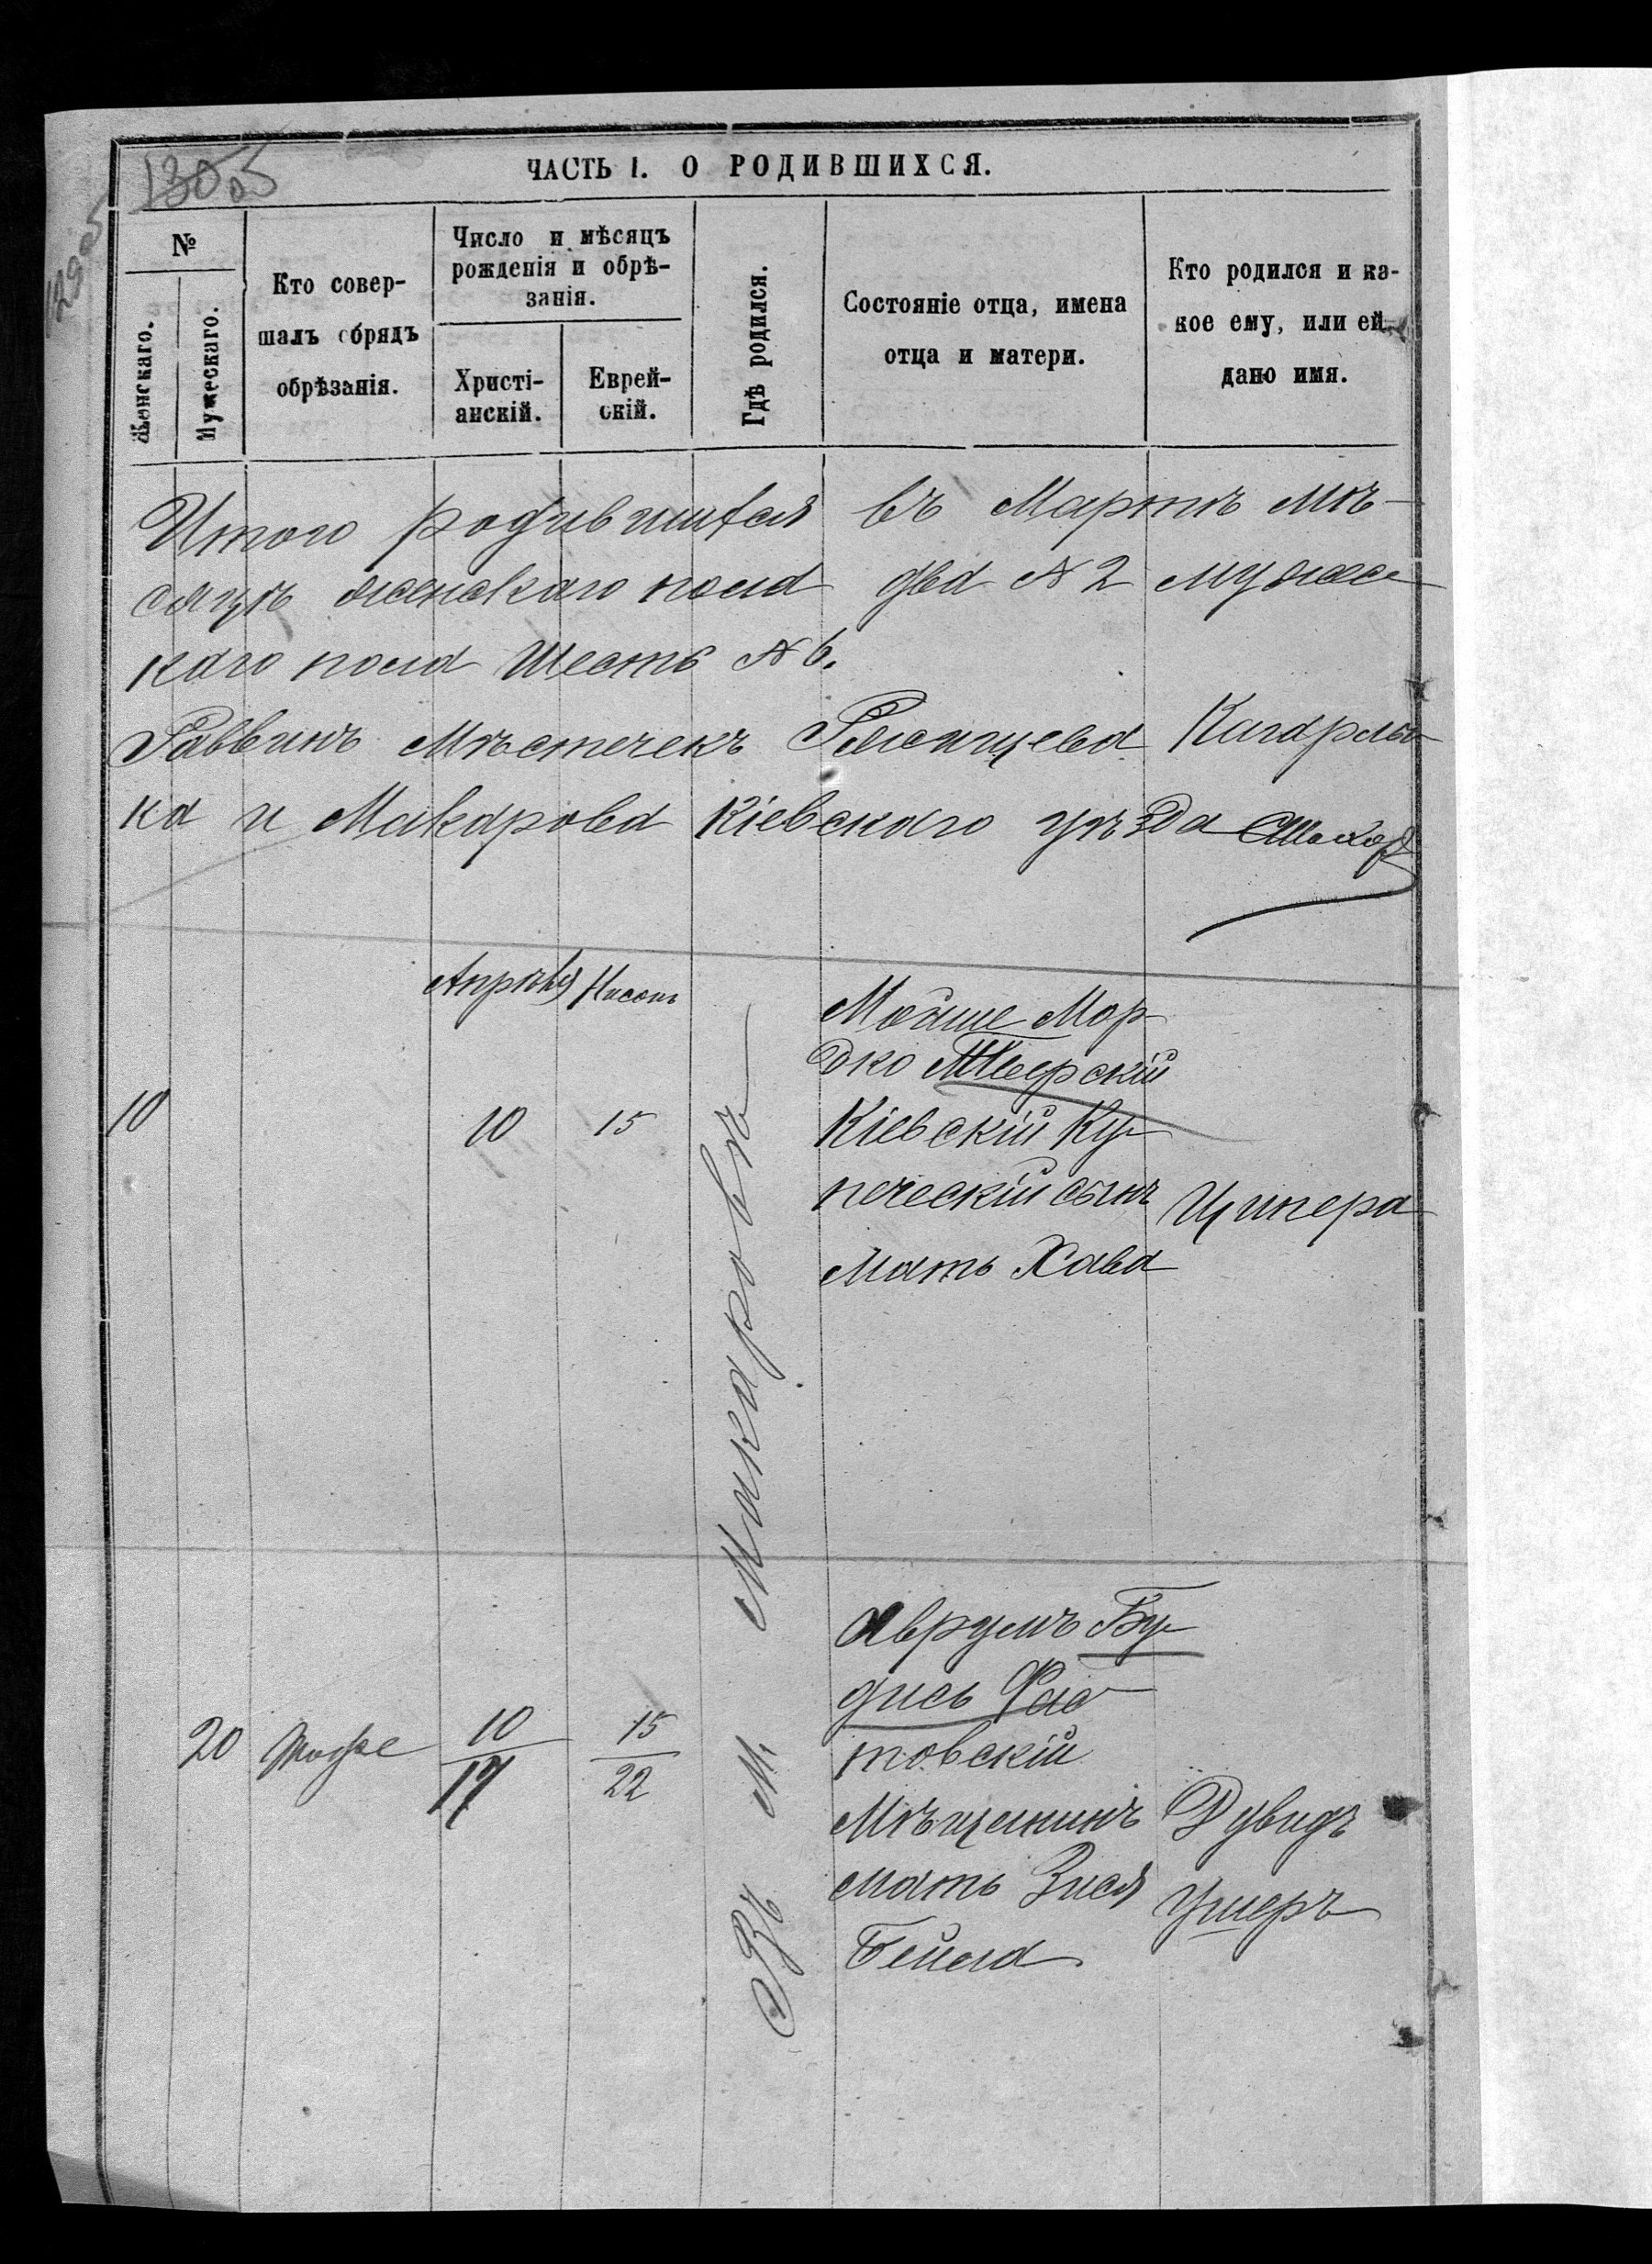 130 об
129 об
ЧАСТЬ I. О РОДИВШИХСЯ.
№
Женскаго.
Мужескаго.
Кто совер-
шалъ обрядъ
обрѣзанія.
Число и мѣсяцъ
рожденія и обрѣ-
занія.
Христі-
анскій.
Еврей-
скій.
Гдѣ родился.
Состояніе отца, имена
отца и матери.
Кто родился и ка-
кое ему, или ей
дано имя.
Итого родившихся въ Мартѣ мѣ-
сяцѣ женскаго пола два № 2 мужес-
каго пола шесть № 6.
Раввинъ Мѣстечекъ Ржищева Кагарлы-
ка и Макарова Кіевскаго уѣзда
Апрѣля Нисонъ
10 10 15
Мойше Мор-
дко Тверскій
Кіевскій Ку-
печескій сынъ
Мать Хава
Ципера
Въ м. Макаровѣ
20 10 15
17 22
Аврумъ Бу-
дись Фас-
товскій
Мѣщанинъ
мать Зися
Бейла
Дувидъ
Ушеръ